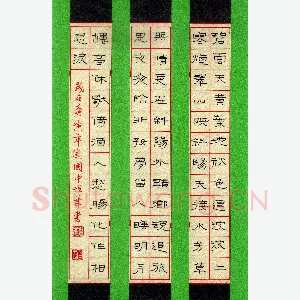 碧雲天黃葉地秋色連波波上
寒煙翠山映斜陽天接水芳草
無情更在斜陽外黯鄉魂追旅
思夜夜除非好夢留人睡明月
樓高休獨倚酒入愁腸化作相
思淚